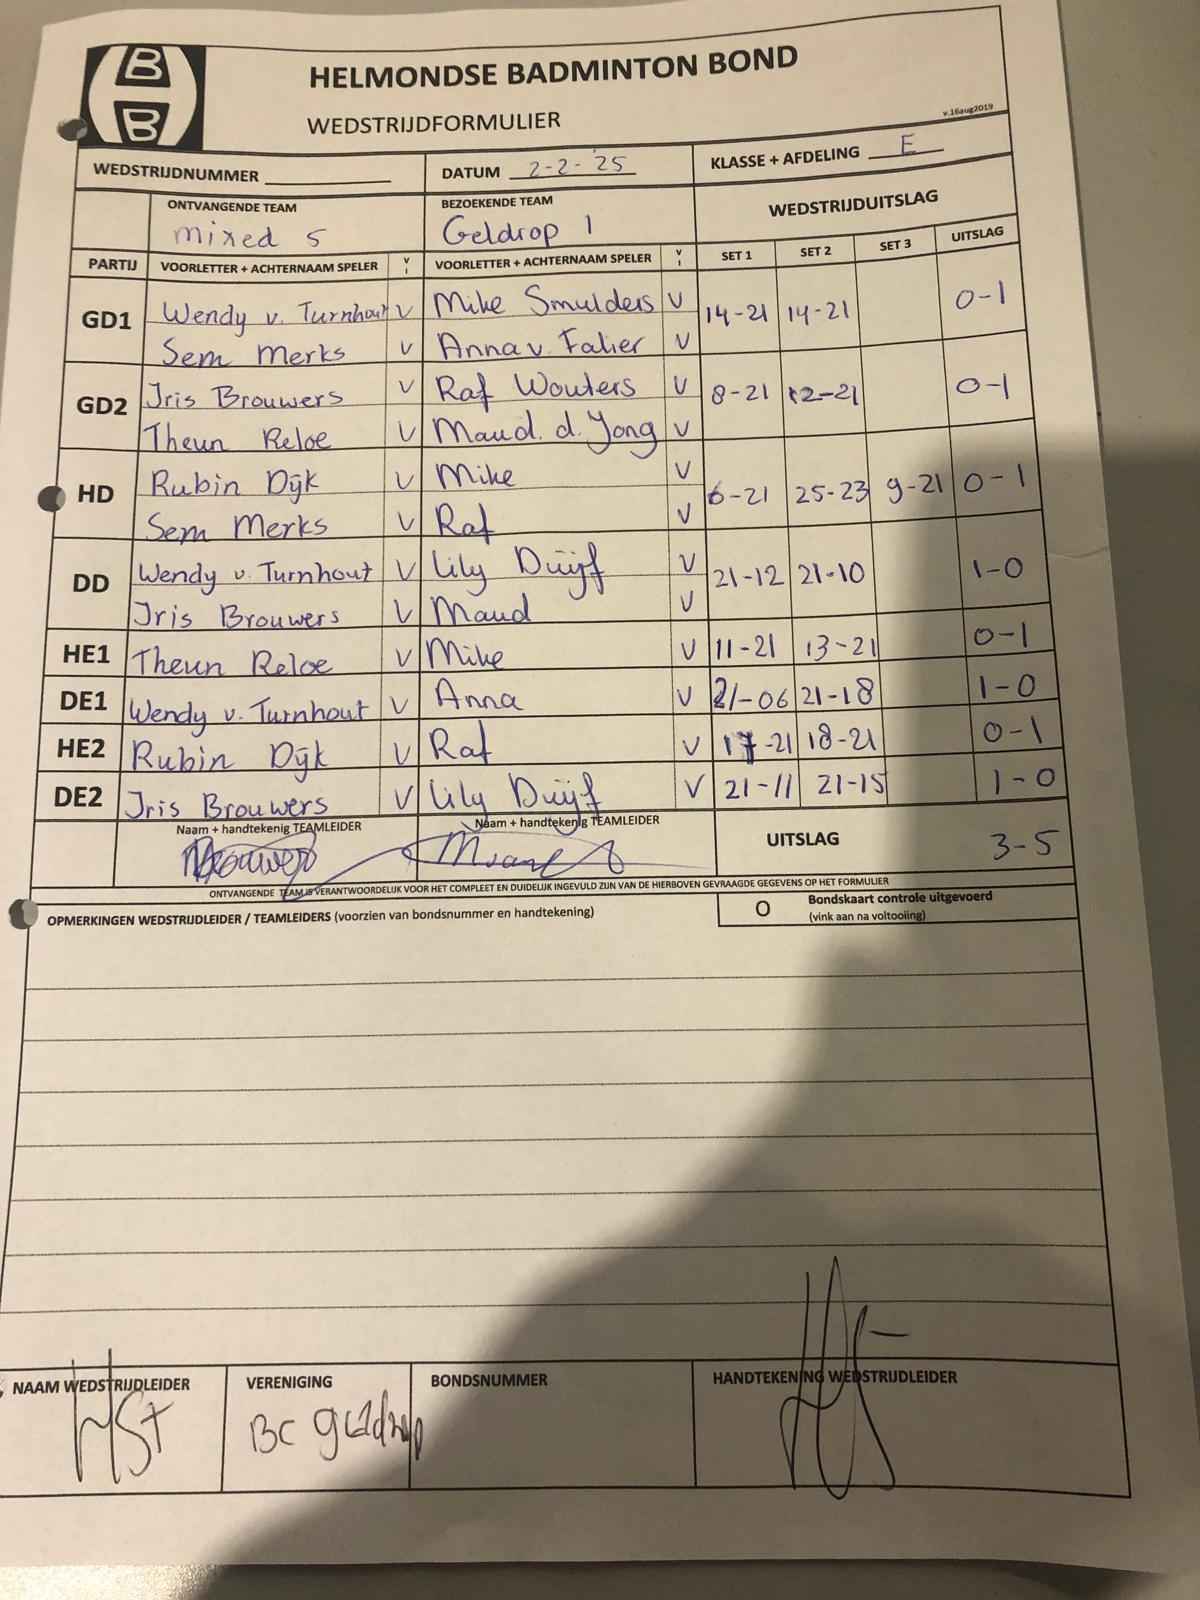 B
B
HELMONDSE BADMINTON BOND
WEDSTRIJDFORMULIER
v.16aug2019
WEDSTRIJDNUMMER DATUM 2-2-'25 KLASSE + AFDELING E
ONTVANGENDE TEAM BEZOEKENDE TEAM WEDSTRIJDUITSLAG
mixed 5 Geldrop 1
PARTIJ VOORLETTER + ACHTERNAAM SPELER V I VOORLETTER + ACHTERNAAM SPELER V I SET 1 SET 2 SET 3 UITSLAG
GD1 Wendy v. Turnhout V Mike Smulders V 14-21 14-21 0-1
Sem Merks V Anna v. Falier V
GD2 Iris Brouwers V Raf Wouters V 8-21 12-21 0-1
Theun Reloe V Maud. d. Jong V
HD Rubin Dijk V Mike V 6-21 25-23 9-21 0-1
Sem Merks V Raf V
DD Wendy v. Turnhout V Lily Duijf V 21-12 21-10 1-0
Iris Brouwers V Maud V
HE1 Theun Reloe V Mike V 11-21 13-21 0-1
DE1 Wendy v. Turnhout V Anna V 21-06 21-18 1-0
HE2 Rubin Dijk V Raf V 17-21 18-21 0-1
DE2 Iris Brouwers V Lily Duijf V 21-11 21-15 1-0
Naam + handtekenig TEAMLEIDER Naam + handtekenig TEAMLEIDER UITSLAG 3-5
Brouwers
ONTVANGENDE TEAM IS VERANTWOORDELIJK VOOR HET COMPLEET EN DUIDELIJK INGEVULD ZIJN VAN DE HIERBOVEN GEVRAAGDE GEGEVENS OP HET FORMULIER
OPMERKINGEN WEDSTRIJDLEIDER / TEAMLEIDERS (voorzien van bondsnummer en handtekening) O Bondskaart controle uitgevoerd
(vink aan na voltooiing)
NAAM WEDSTRIJDLEIDER VERENIGING BONDSNUMMER HANDTEKENING WEDSTRIJDLEIDER
BC geldrop